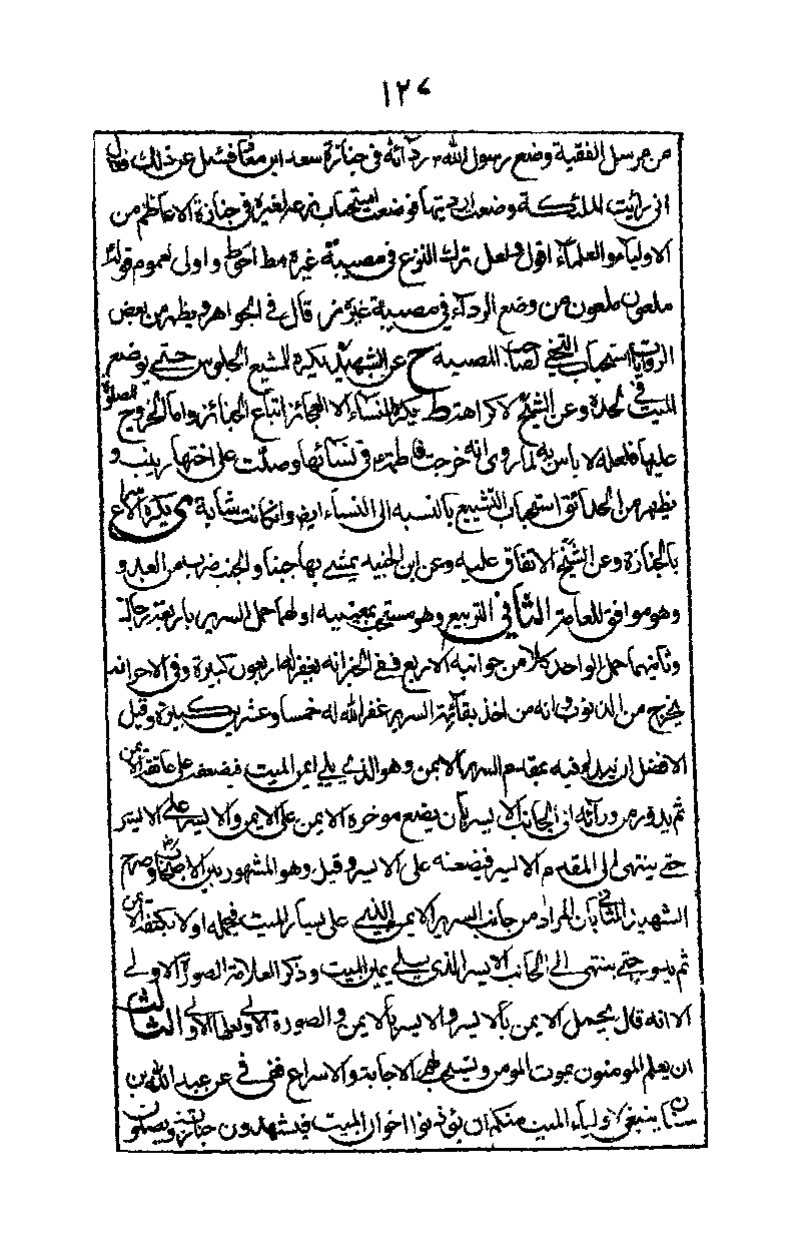 ١٢٧
من مرسل الفقيه وضع رسول الله ردآئه في جنازة سعد ابن معاذ فسئل عن ذلك فقال
اني رأيت الملئكة وضعت ارديتها فوضعت استحباب نزعه لغيره في جنازة الاعاظم من
الاوليآء والعلمآء اقول ولعل ترك النزع في مصيبة غيره مط احوط واولى لعموم قوله
ملعون ملعون من وضع الردآء في مصيبة غيره قال في الجواهر ويظهر من بعض
الروايات استحباب التحفي لصاحب المصيبة ح عن الشهيد يكره للمشيع الجلوس حتى يوضع
الميت في لحده وعن الشيخ لا كراهة ط يكره للنساء الا العجائز اتباع الجنائز واما الخروج للصلوة
عليها فلعله لا باس به لما روى انه خرجت فاطمة في نسائها وصلت على اختها زينب و
يظهر من الحدائق استحباب التشييع بالنسبه الى النساء ايض وان كانت شابة ى يكره الاسراع
بالجنازة وعن الشيخ الاتفاق عليه وعن ابن الجنيد يمشى بها جنبا والجنب ضرب من العدو
وهو موافق للعامة الثاني التربيع وهو مستحب بمعنييه اولهما حمل السرير باربعة رجال
وثانيهما حمل الواحد كلا من جوانبه الاربع ففي الخبر انه يغفر له اربعون كبيرة وفي الاخر انه
يخرج من الذنوب وانه من اخذ بقآئمة السرير غفر الله له خمسا وعشرين كبيرة وقيل
الافضل ان يبدء فيه بمقدم السرير الايمن وهو الذي يلي ايمن الميت فيضعه على عاتقه الايمن
ثم يدور من ورآئه الى الجانب الايسر بان يضع موخره الايمن على الايمن والايسر على الايسر
حتى ينتهى الى المقدم الايسر فيضعه على الايسر وقيل وهو المشهور بين الاصحاب وصرح
الشهيد الثاني بان المراد من جانب السرير الايمن الذي على يسار الميت فيحمله اولا بكتفه الايمن
ثم يدور حتى ينتهى الى الجانب الايسر الذي يلي يمين الميت وذكر العلامة الصورة الاولى
الا انه قال يحمل الايمن بالايسر والايسر بالايمن والصورة الاولى الثالث
ان يعلم المومنون بموت المومن ويستحب لهم الاجابة والاسراع ففي في عن عبد الله بن
سنان ينبغي لاولياء الميت منكم ان يوذنوا اخوان الميت فيشهدون جنازته ويصلون